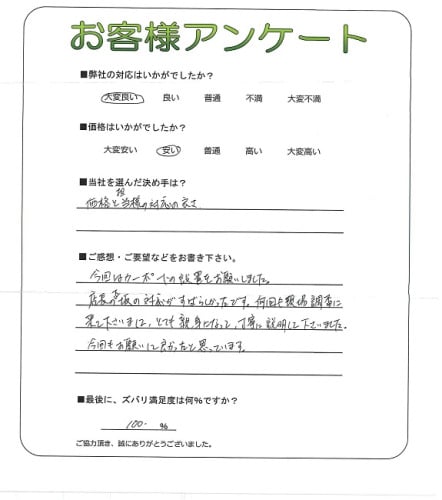 お客様アンケート
■弊社の対応はいかがでしたか？
大変良い 良い 普通 不満 大変不満
■価格はいかがでしたか？
大変安い 安い 普通 高い 大変高い
■当社を選んだ決め手は？
担
価格と当様の対応の良さ
■ご感想・ご要望などをお書き下さい。
今回はカーポートの設置をお願いしました。
店長の対応がすばらしかったです。何回も現場調査に
来て下さいまして、とても親身になって、丁寧に説明して下さいました。
今回もお願いして良かったと思っています。
■最後に、ズバリ満足度は何％ですか？
100 ％
ご協力頂き、誠にありがとうございました。